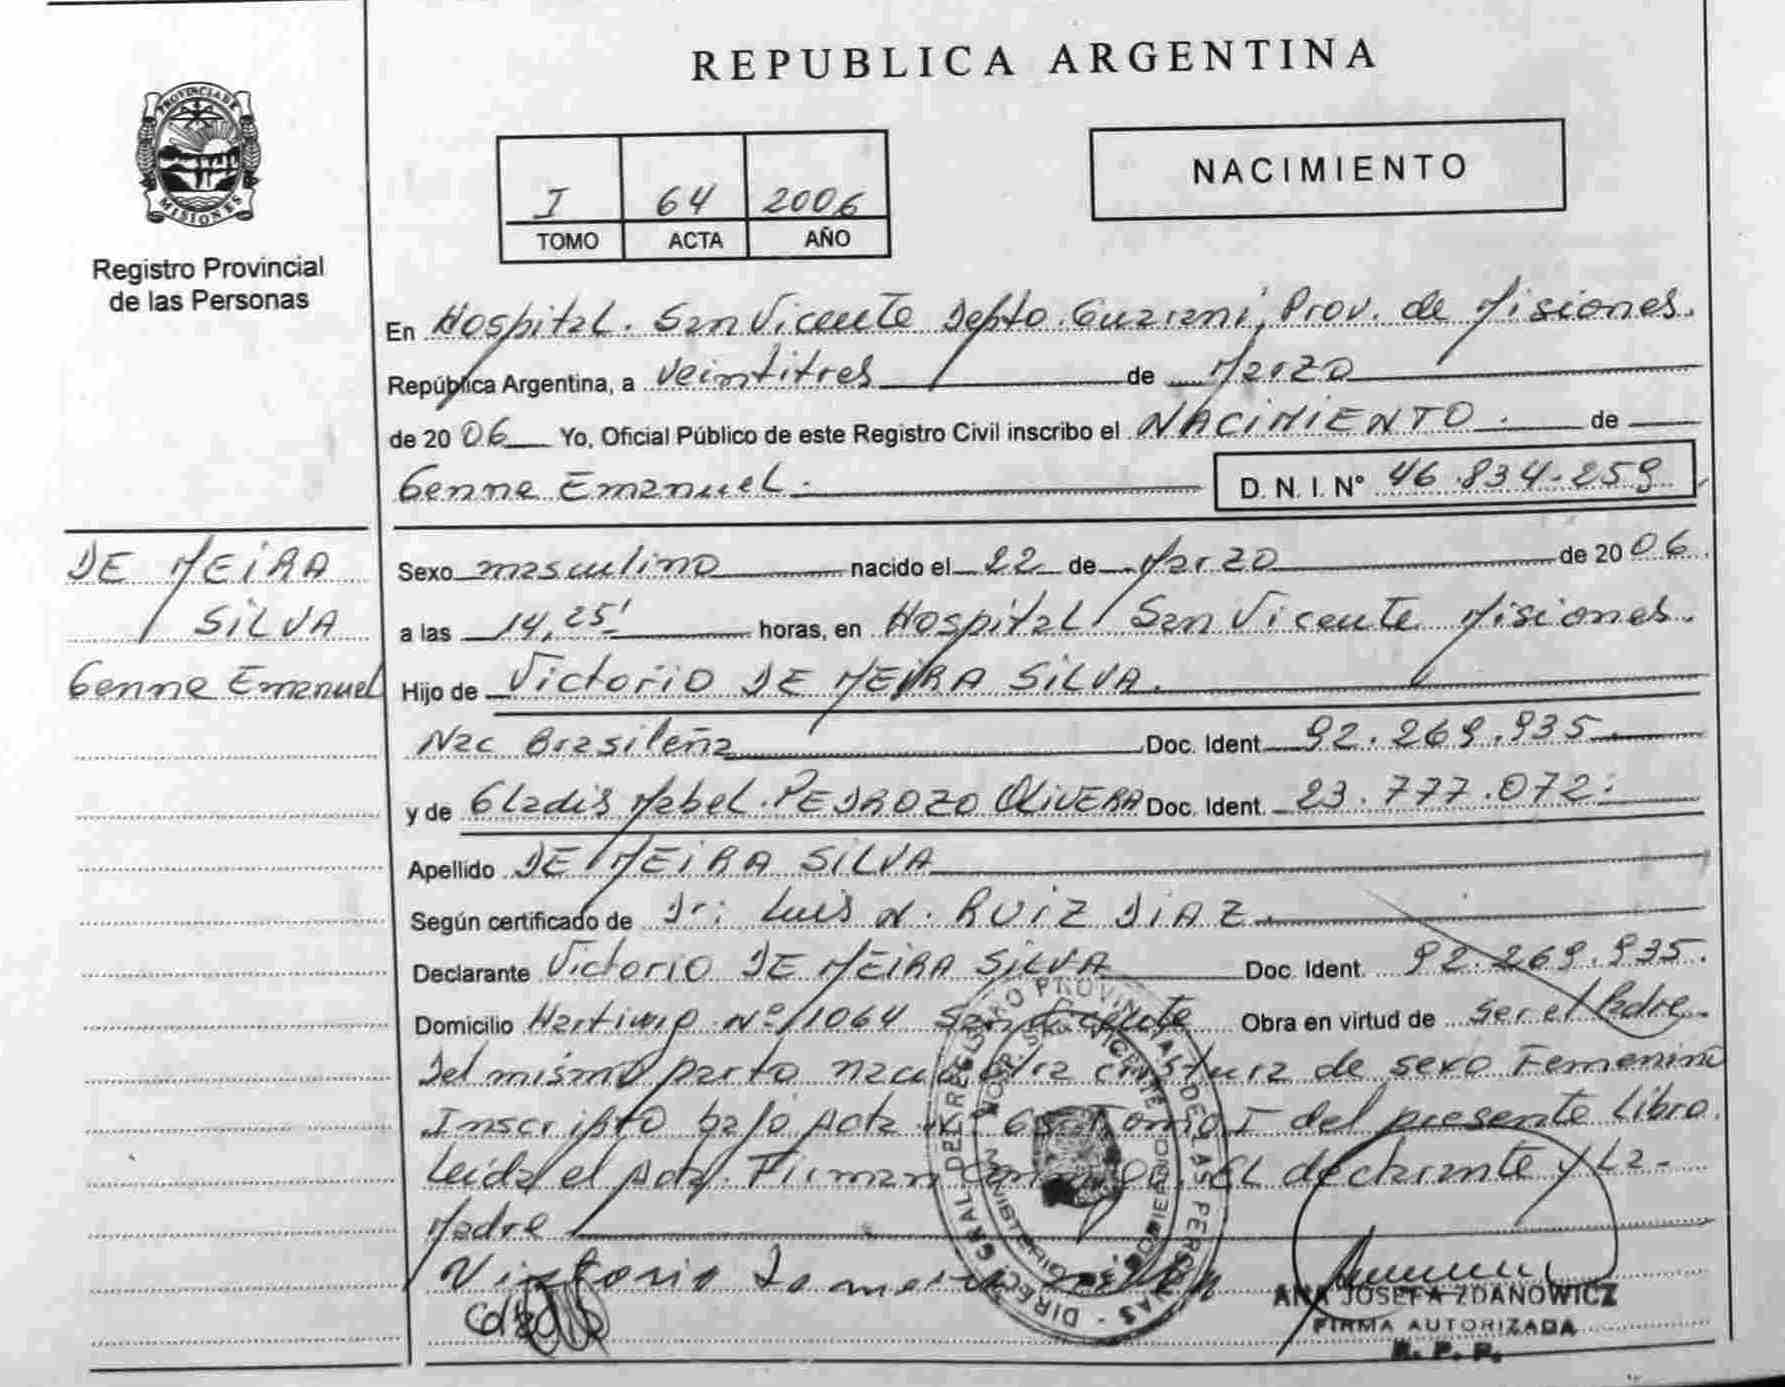 REPUBLICA ARGENTINA
PROVINCIA DE MISIONES
Registro Provincial
de las Personas
I 64 2006
TOMO ACTA AÑO
NACIMIENTO
En Hospital. San Vicente Depto. Guarani, Prov. de Misiones.
República Argentina, a veintitres de Marzo
de 2006 Yo, Oficial Público de este Registro Civil inscribo el NACIMIENTO. de
Genne Emanuel. D. N. I. Nº 46.834.259
DE MEIRA
SILVA
Genne Emanuel
Sexo masculino nacido el 22 de Marzo de 2006.
a las 14,25' horas, en Hospital San Vicente Misiones.
Hijo de Victorio DE MEIRA SILVA.
Nac Brasileña Doc. Ident. 92.269.935.
y de Gladis Mabel. PEDROZO OLIVERA Doc. Ident. 23.777.072.
Apellido DE MEIRA SILVA
Según certificado de Dr: Luis N. RUIZ DIAZ.
Declarante Victorio DE MEIRA SILVA Doc. Ident. 92.269.935.
Domicilio Nº 1064 San Vicente Obra en virtud de ser el Padre
Del mismo parto nace otra criatura de sexo Femenino
Inscripto bajo Acta Nº 65 Tomo I del presente Libro.
Leida el Acta. Firman El declarante y La
Madre
DIRECC. GRAL DEL REGISTRO PROVINCIAL DE LAS PERSONAS
ANA JOSEFA ZDANOWICZ
FIRMA AUTORIZADA
R. P. P.